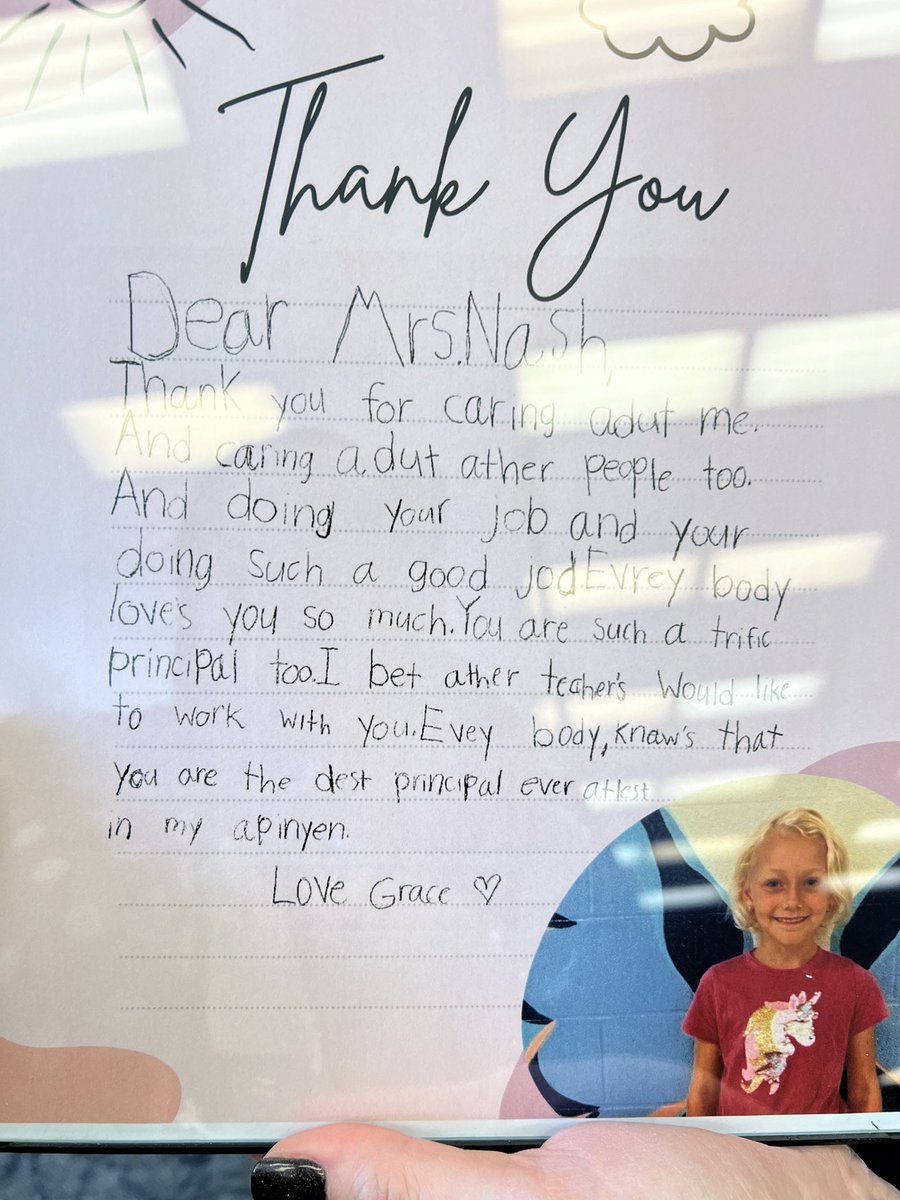 Thank You
Dear Mrs.Nash,
Thank you for caring adut me.
And caring adut ather people too.
And doing your job and your
doing such a good jod.Evrey body
love's you so much.You are such a trific
principal too.I bet ather tcaher's would like
to work with you.Evey body, knaw's that
you are the dest principal ever atlest
in my apinyen.
Love Grace ♡